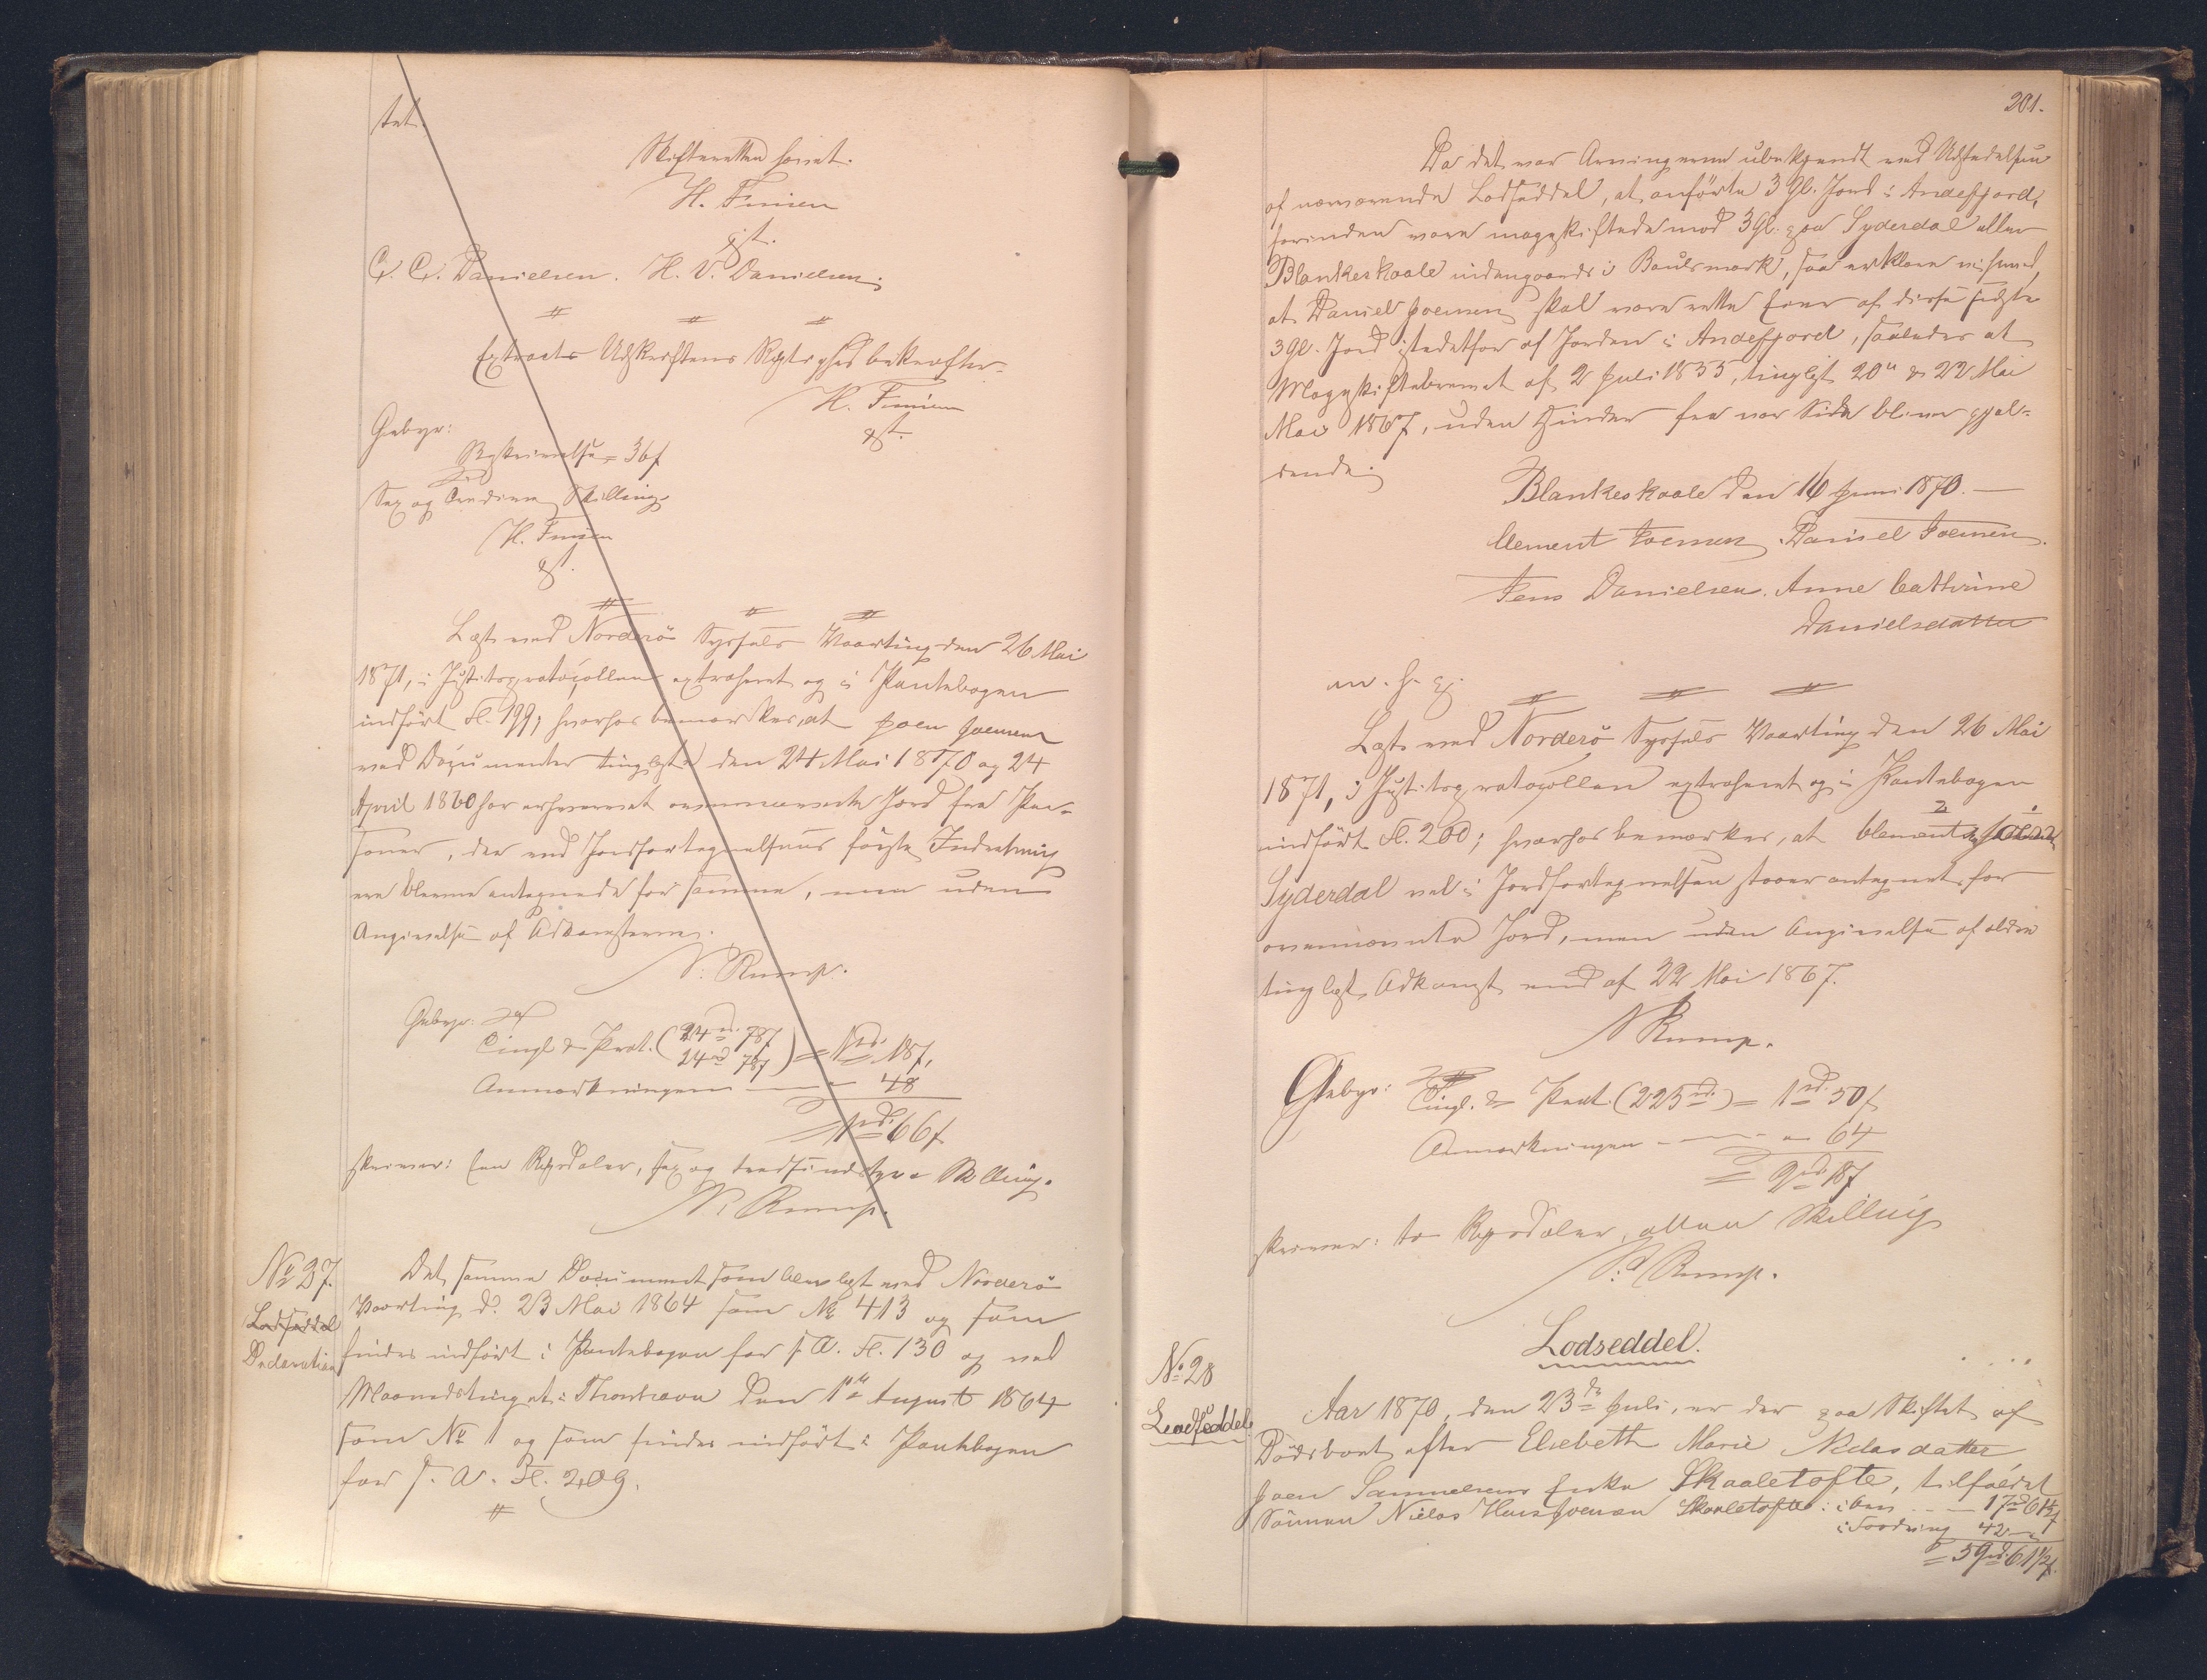 tet.
Skifteretten hævet.
H. Finsen
cst.
C. C. Danielsen. H. V. Danielsen.
Extract-Udskriftens Rigtighed bekræfter.
H. Finsen
cst.
Gebyr:
Beskrivelse = 36 f
Sex og Tredive Skilling
H. Finsen
cst.
Læst ved Norderö Syssels Vaarting den 26 Mai
1871, i Justitsprotocollen extraheret og i Pantebogen
indført Fl. 199; hvorhos bemærkes, at Joen Joensen
ved Documenter tinglyste den 24 Mai 1870 og 24
April 1860 har erhvervet ovennævnte Jord fra Per-
soner, der ved Jordfortegnelsens første Indretning
ere blevne antegnede for samme, men uden
Angivelse af Adkomsterne.
N. Rump.
Gebyr:
Tingl. & Prot. (24 rd. 78 f
24 rd 78 f) = 1 rd. 18 f,
Anmærkningen — 48
= 1 rd. 66 f
skriver: Een Rigsdaler, sex og tredsindstyve Skilling.
N. Rump.
No 27.
Lodseddel
Declaration
Det samme Document som blev læst ved Norderö
Vaarting d. 23 Mai 1864 som No 413 og som
findes indført i Pantebogen for s. A. Fl. 130 og ved
Maanedstinget i Thorshavn den 1ste August 1864
som No 1 og som findes indført i Pantebogen
for s. A. Fl. 209.
201.
Da det var Arvingerne ubekjendt ved Udstedelsen
af nærværende Lodseddel, at anførte 3 Gl. Jord i Andefjord,
forinden vare mageskiftede mod 3 Gl. paa Syderdal eller
Blankeskaale indengaards i Bøulsmark, saa erklære vi herved,
at Daniel Joensen skal være rette Eier af disse sidste
3 Gl. Jord istedetfor af Jorden i Andefjord, saaledes at
Mageskiftebrevet af 2 Juli 1855, tinglyst 20 & 22 Mai
Mai 1867, uden Hinder fra vor Side bliver gjæl-
dende.
Blankeskaale den 16 Juni 1870. —
Clement Joensen Daniel Joensen.
Jens Danielsen. Anne Cathrine
Danielsdatter
m. f. P.
Læst ved Norderö Syssels Vaarting den 26 Mai
1871, i Justitsprotocollen extraheret og i Pantebogen
indført Fl. 200; hvorhos bemærkes, at Clement
Syderdal vel i Jordfortegnelsen staaer antegnet for
ovennævnte Jord, men uden Angivelse af ældre
tinglyst Adkomst end af 22 Mai 1867.
N Rump.
Gebyr: Tingl. & Prot. (225 rd.) = 1 rd. 50 f
Anmærkningen — 64
= 2 rd 18 f
skriver: to Rigsdaler, atten Skilling
N. Rump.
Lodseddel.
No 28
Lodseddel
Aar 1870, den 23de Juli, er der paa Skiftet af
Dödsboet efter Elsebeth Marie Nielsdatter
Joen Samuelsens Enke Skaaletofte, tilfaldet
Sönnen Niels Hans Joensen Skaaletofte: i Boe — 17 rd 61½ f
i Fordring 42 —
= 59 rd. 61½ f.